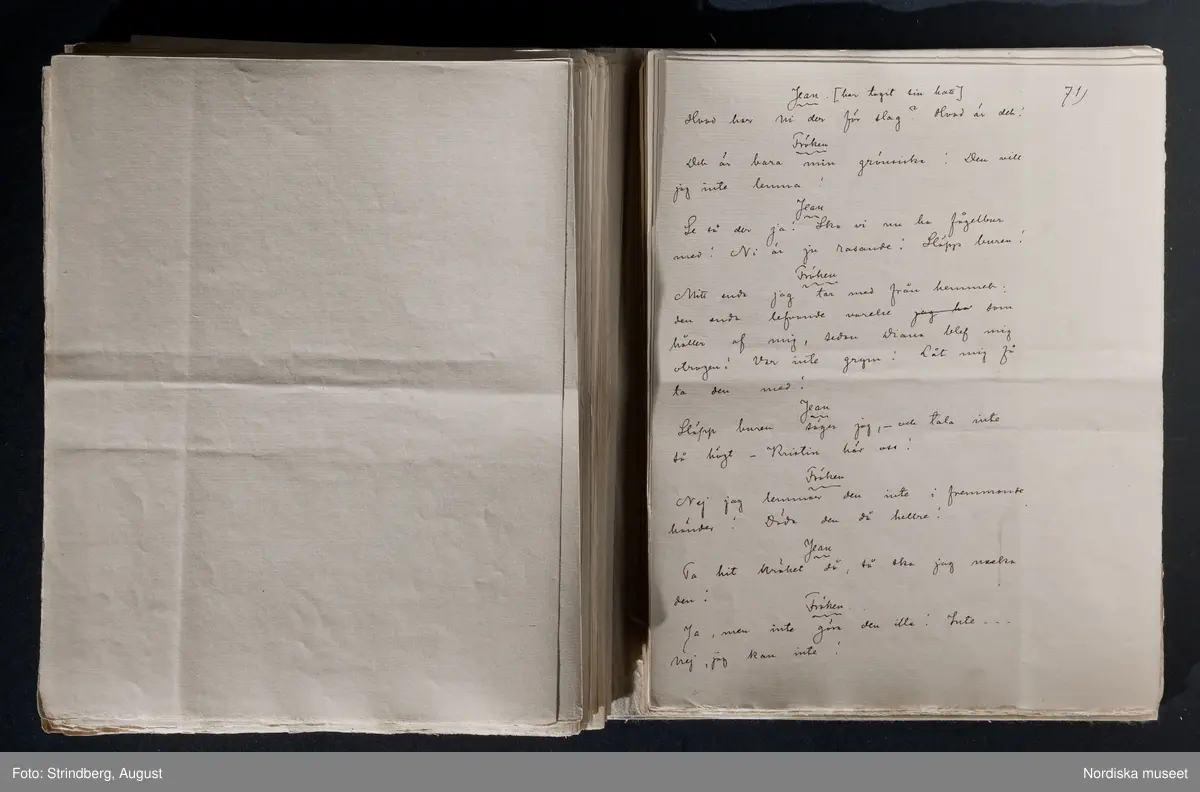 71)
Jean. [har tagit sin hatt]
Hvad har Ni der för slag? Hvad är det?
Fröken
Det är bara min grönsiska! Den vill
jag inte lemna!
Jean
Se så der ja! Ska vi nu ha fågelbur
med! Ni är ju rasande! Släpp buren!
Fröken
Mitt enda jag tar med från hemmet;
den enda lefvande varelse jag ha som
håller af mig, sedan Diana blef mig
otrogen! Var inte grym! Låt mig få
ta den med!
Jean
Släpp buren säger jag, – och tala inte
så högt – Kristin hör oss!
Fröken
Nej jag lemnar den inte i fremmande
händer! Döda den då hellre!
Jean
Ta hit kräket då, så ska jag nacka
den!
Fröken
Ja, men inte göra den illa! Inte ...
nej, jag kan inte!
Foto: Strindberg, August
Nordiska museet